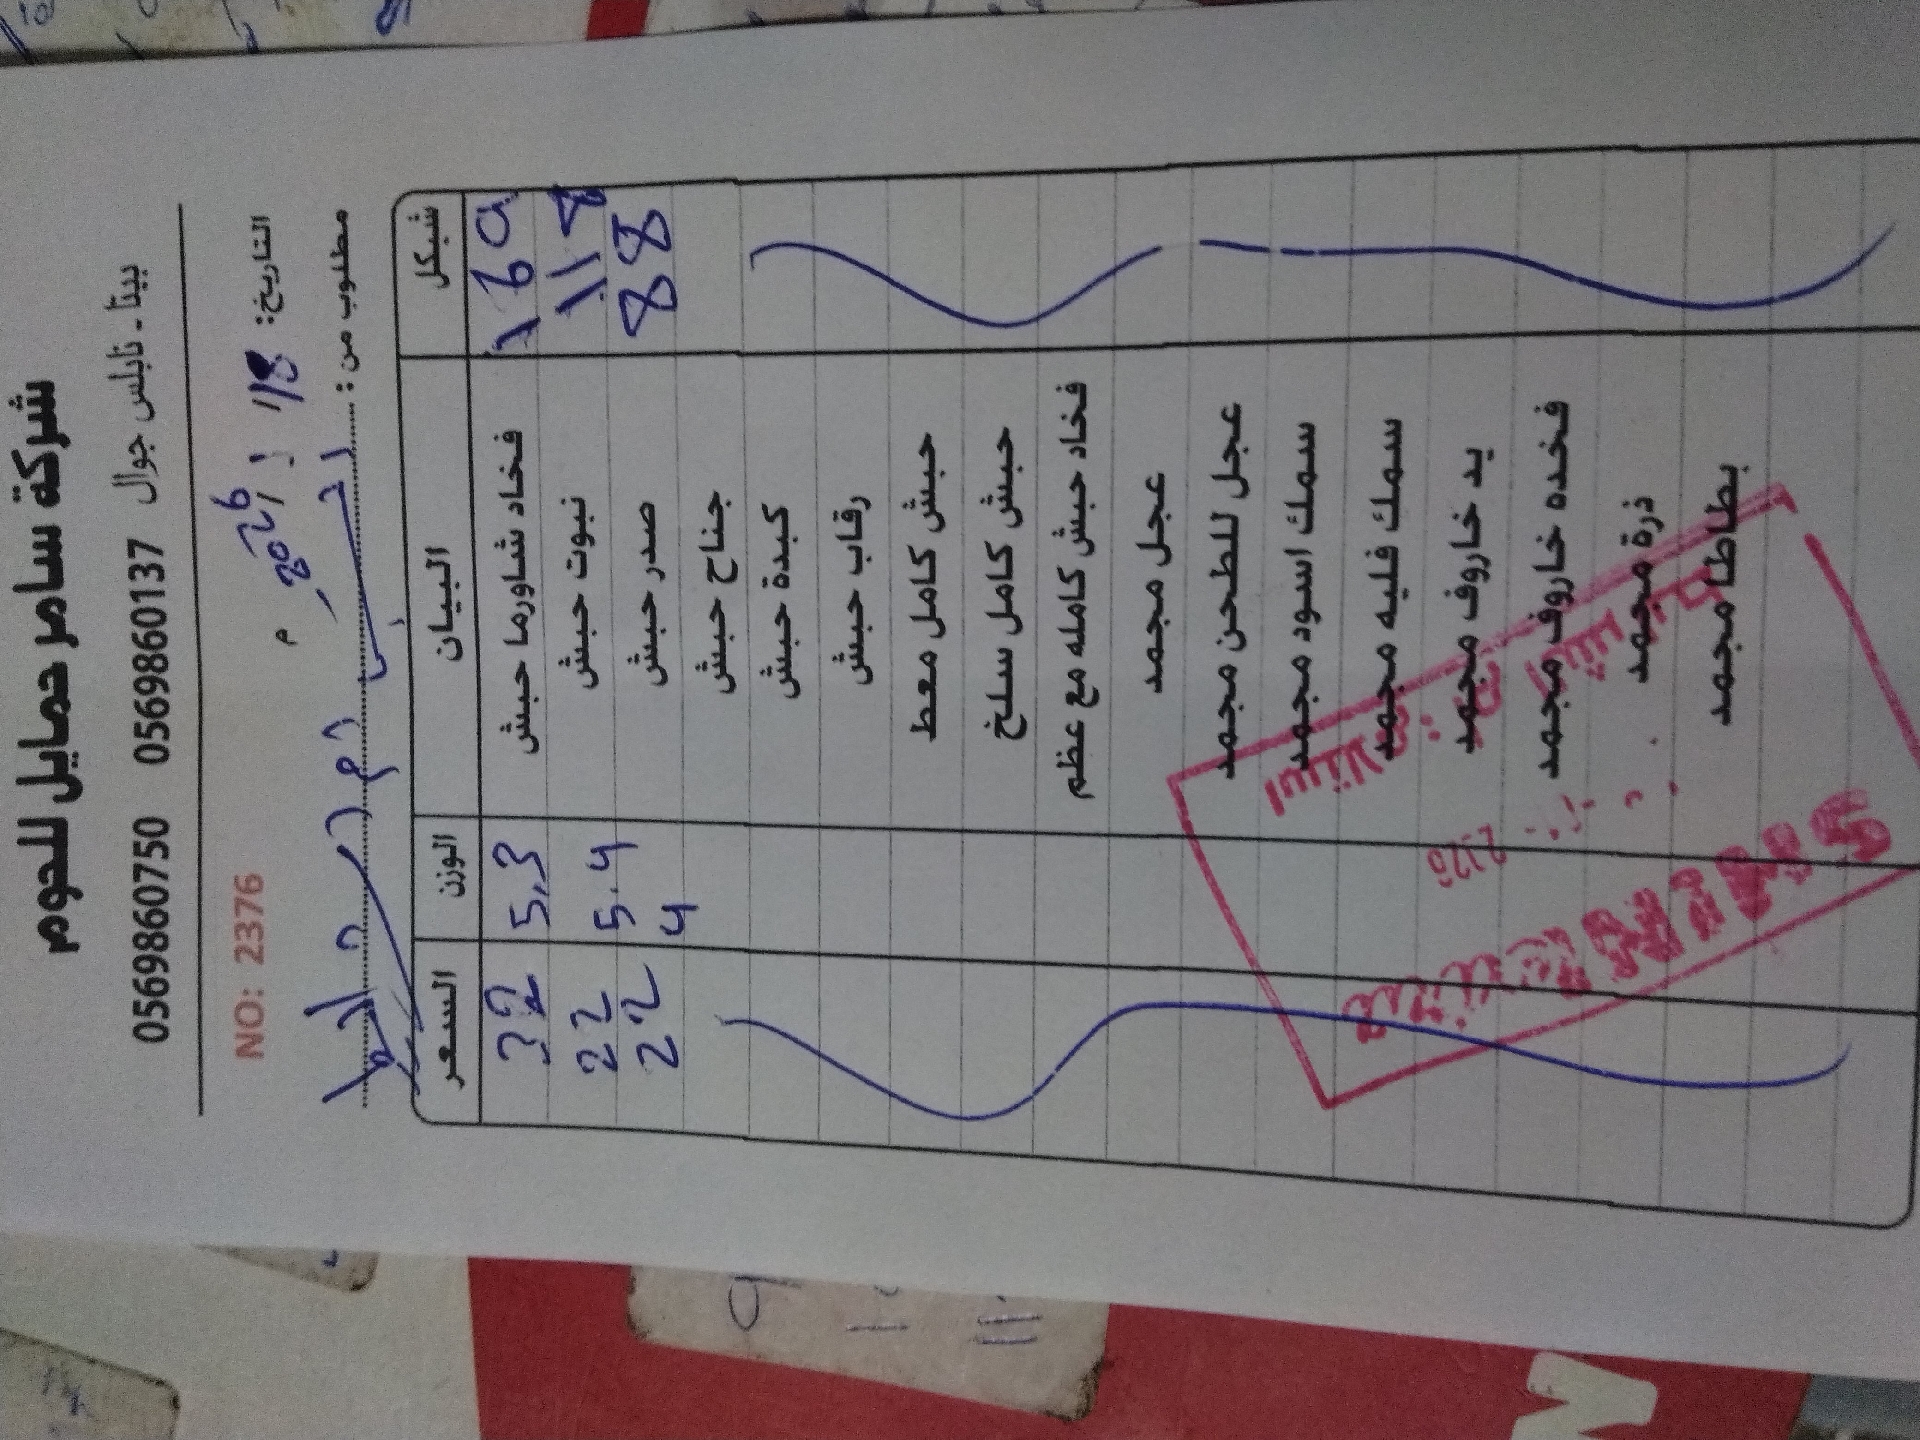 شركة سامر حمايل للحوم
بيتا - نابلس جوال 0569860137 0569860750
التاريخ: 8/1/2026 م NO: 2376
مطلوب من:
شيكل البيان الوزن السعر
169 فخاد شاورما حبش 5.3 32
118 نبوت حبش 5.4 22
88 صدر حبش 4 22
جناح حبش
كبدة حبش
رقاب حبش
حبش كامل معط
حبش كامل سلخ
فخاد حبش كامله مع عظم
عجل مجمد
عجل للطحن مجمد
سمك اسود مجمد
سمك فليه مجمد
يد خاروف مجمد
فخده خاروف مجمد
ذرة مجمد
بطاطا مجمد